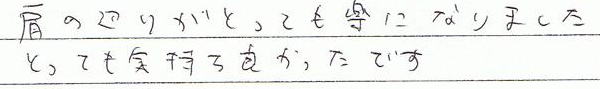 肩の辺りがとっても楽になりました
とっても気持ち良かったです